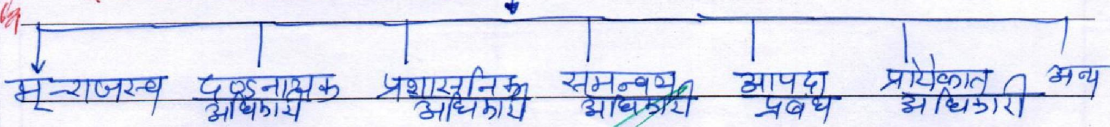 भू-राजस्व दण्डनायक अधिकारी प्रशासनिक अधिकारी समन्वय अधिकारी आपदा प्रबंध प्रोटोकाल अधिकारी अन्य